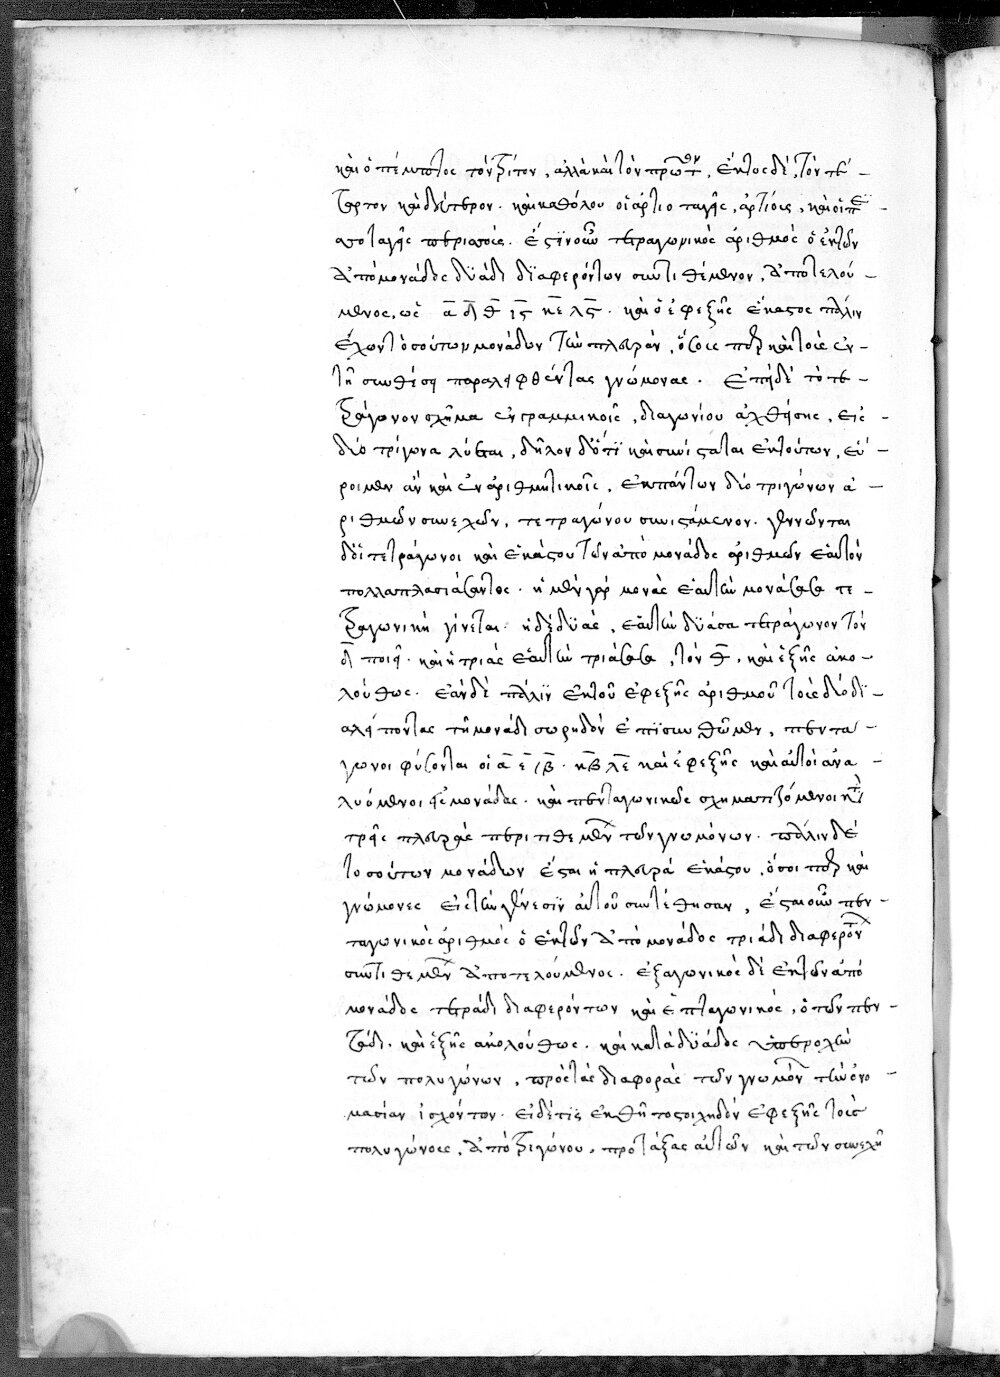 καὶ ὁ πέμπτος τὸν τρίτον, ἀλλὰ καὶ τὸν πρῶτον, ἕκτος δὲ, τὸν τέ-
ταρτον καὶ δεύτερον. καὶ καθόλου οἱ ἀρτιοταγεῖς, ἀρτίοις, καὶ οἱ πε-
ρισσοταγεῖς περισσοῖς. ἔστιν οὖν τετραγωνικὸς ἀριθμὸς ὁ ἐκ τῶν
ἀπὸ μονάδος δυάδι διαφερόντων συντιθέμενον, ἀποτελού-
μενος, ὡς α δ θ ις κε λς. καὶ ὁ ἐφεξῆς ἕκαστος πάλιν
ἔχων τοσούτων μονάδων τὴν πλευρὰν, ὅσοις περ καὶ τοῖς ἐν
τῇ συνθέσει παραληφθέντας γνώμονας. ἐπεὶ δὲ τὸ τε-
τράγωνον σχῆμα ἐν γραμμικοῖς, διαγωνίου ἀχθείσης, εἰς
δύο τρίγωνα λύεται, δῆλον δὲ ὅτι καὶ συνίσταται ἐκ τούτων, εὕ-
ροιμεν ἂν καὶ ἐν ἀριθμητικοῖς, ἐκ πάντων δύο τριγώνων ἀ-
ριθμῶν συνεχῶν, τετραγώνου συνιστάμενον. γεννῶνται
δὲ οἱ τετράγωνοι καὶ ἑκάστου τῶν ἀπὸ μονάδος ἀριθμῶν ἑαυτὸν
πολλαπλασιάσαντος. ἡ μὲν γὰρ μονὰς ἑαυτὴν μονάσασα τε-
τραγωνικὴ γίνεται. ἡ δὲ δυὰς, ἑαυτὴν δυάσασα τετράγωνον τὸν
δ ποιεῖ. καὶ ἡ τριὰς ἑαυτὴν τριάσασα, τὸν θ. καὶ ἑξῆς ἀκο-
λούθως. ἐὰν δὲ πάλιν ἐκ τοῦ ἐφεξῆς ἀριθμοῦ τοὺς δύο δι-
αλείποντας τῇ μονάδι σωρηδὸν ἐπισυνθῶμεν, πεντά-
γωνοι φύσονται οἱ α ε ιβ κβ λε καὶ ἐφεξῆς καὶ αὐτοὶ ἀνα-
λυόμενοι εἰς μονάδας. καὶ πενταγωνικῶς σχηματιζόμενοι κατὰ
τρεῖς πλευρὰς περιτιθεμένων τῶν γνωμόνων. πάλιν δὲ
τοσούτων μονάδων ἔσται ἡ πλευρὰ ἑκάστου, ὅσοι περ καὶ
γνώμονες εἰς τὴν γένεσιν αὐτοῦ συνετέθησαν, ἔσται οὖν πεν-
ταγωνικὸς ἀριθμὸς ὁ ἐκ τῶν ἀπὸ μονάδος τριάδι διαφερόντων
συντιθεμένων ἀποτελούμενος. ἑξαγωνικὸς δὲ ἐκ τῶν ἀπὸ
μονάδος τετράδι διαφερόντων καὶ ἑπταγωνικὸς, ὁ τῶν πεν-
τάδι. καὶ ἑξῆς ἀκολούθως. καὶ κατὰ δυάδος ὑπεροχὴν
τῶν πολυγώνων, πρὸς τὰς διαφορὰς τῶν γνωμόνων τὴν ὀνο-
μασίαν ἰσχόντων. εἰ δέ τις ἐκθεῖτο στοιχηδὸν ἐφεξῆς τοὺς
πολυγώνους, ἀπὸ τριγώνου, προτάξας αὐτῶν καὶ τῶν συνεχῆ